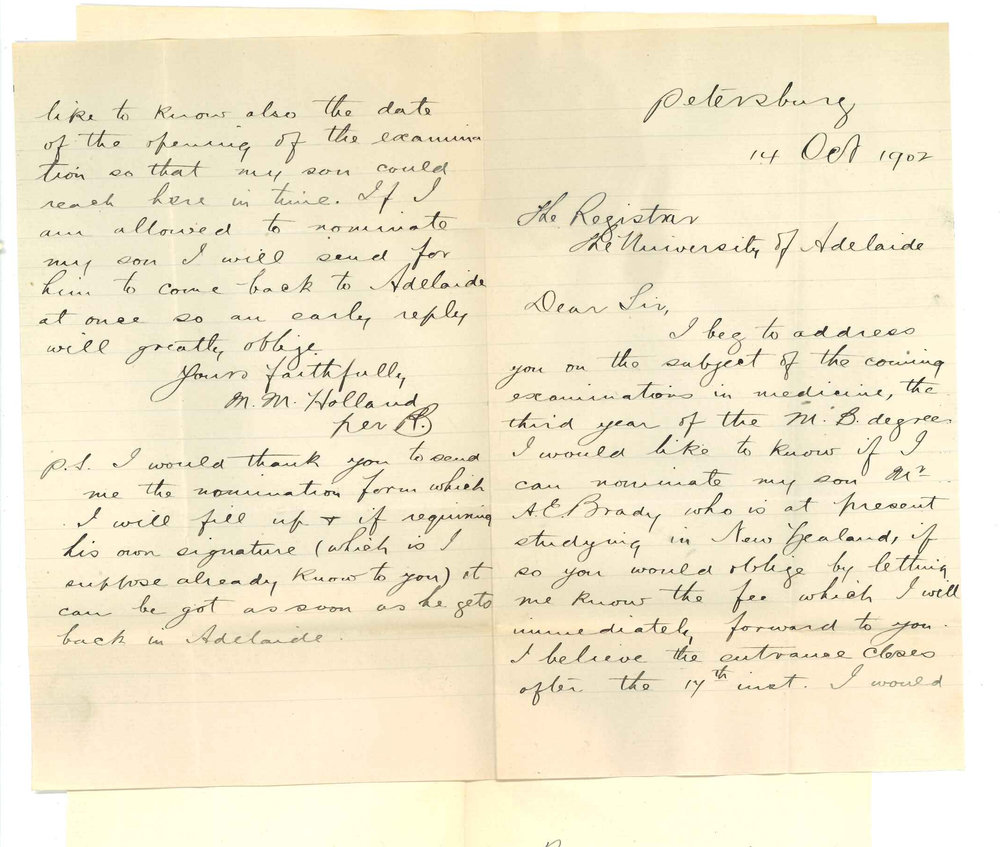 Petersburg
14 Oct 1902
The Registrar
The University of Adelaide
Dear Sir,
I beg to address
you on the subject of the coming
examinations in medicine, the
third year of the M. B. degrees
I would like to know if I
can nominate my son Mr
A.E. Brady who is at present
studying in New Zealand, if
so you would oblige by letting
me know the fee which I will
immediately forward to you.
I believe the entrance closes
after the 17th inst. I would
like to know also the date
of the opening of the examina
tion so that my son could
reach here in time. If I
am allowed to nominate
my son I will send for
him to come back to Adelaide
at once so an early reply
will greatly oblige.
Yours faithfully
M. M. Holland
per
P.S. I would thank you to send
me the nomination form which
I will fill up & if requiring
his own signature (which is I
suppose already know to you) it
can be got as soon as he gets
back in Adelaide.